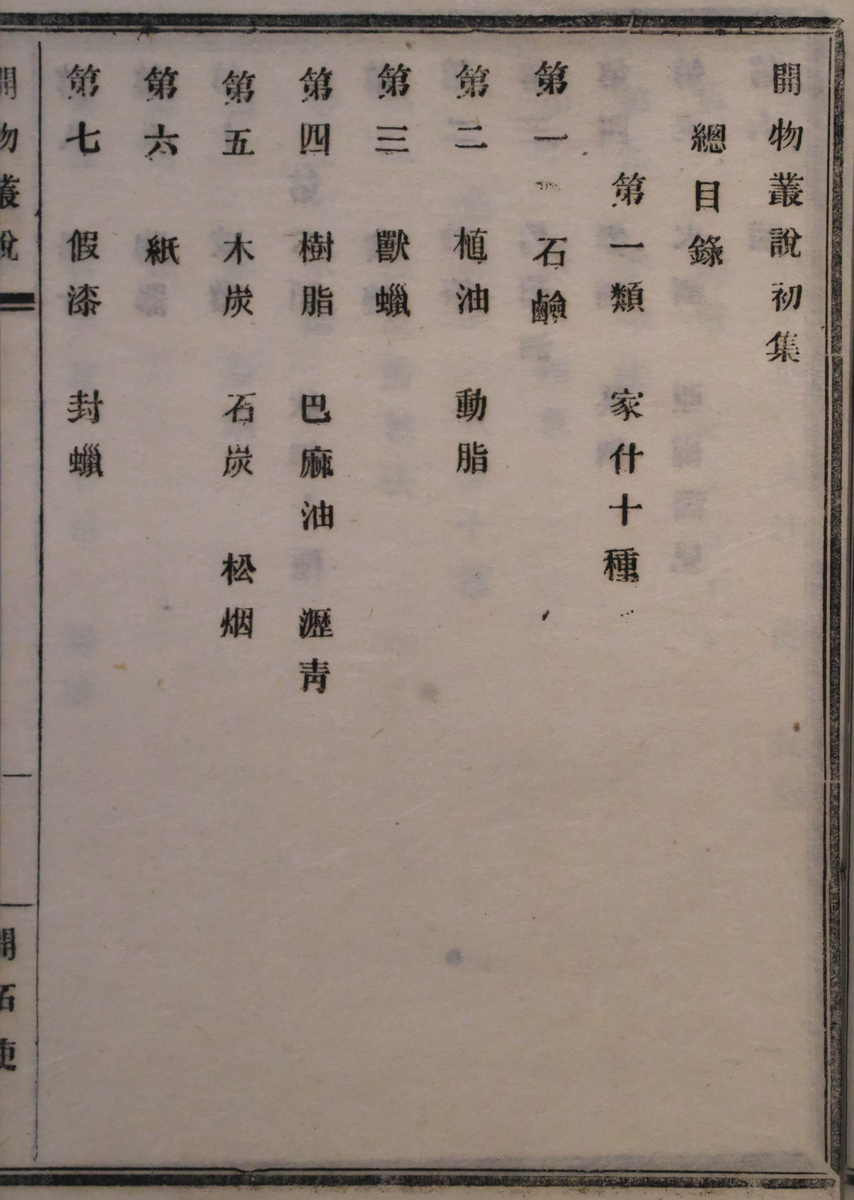 開物叢說初集
總目錄
第一類 家什十種
第一 石鹼
第二 植油 動脂
第三 獸蠟
第四 樹脂 巴麻油 瀝青
第五 木炭 石炭 松烟
第六 紙
第七 假漆 封蠟
開物叢說
開拓使